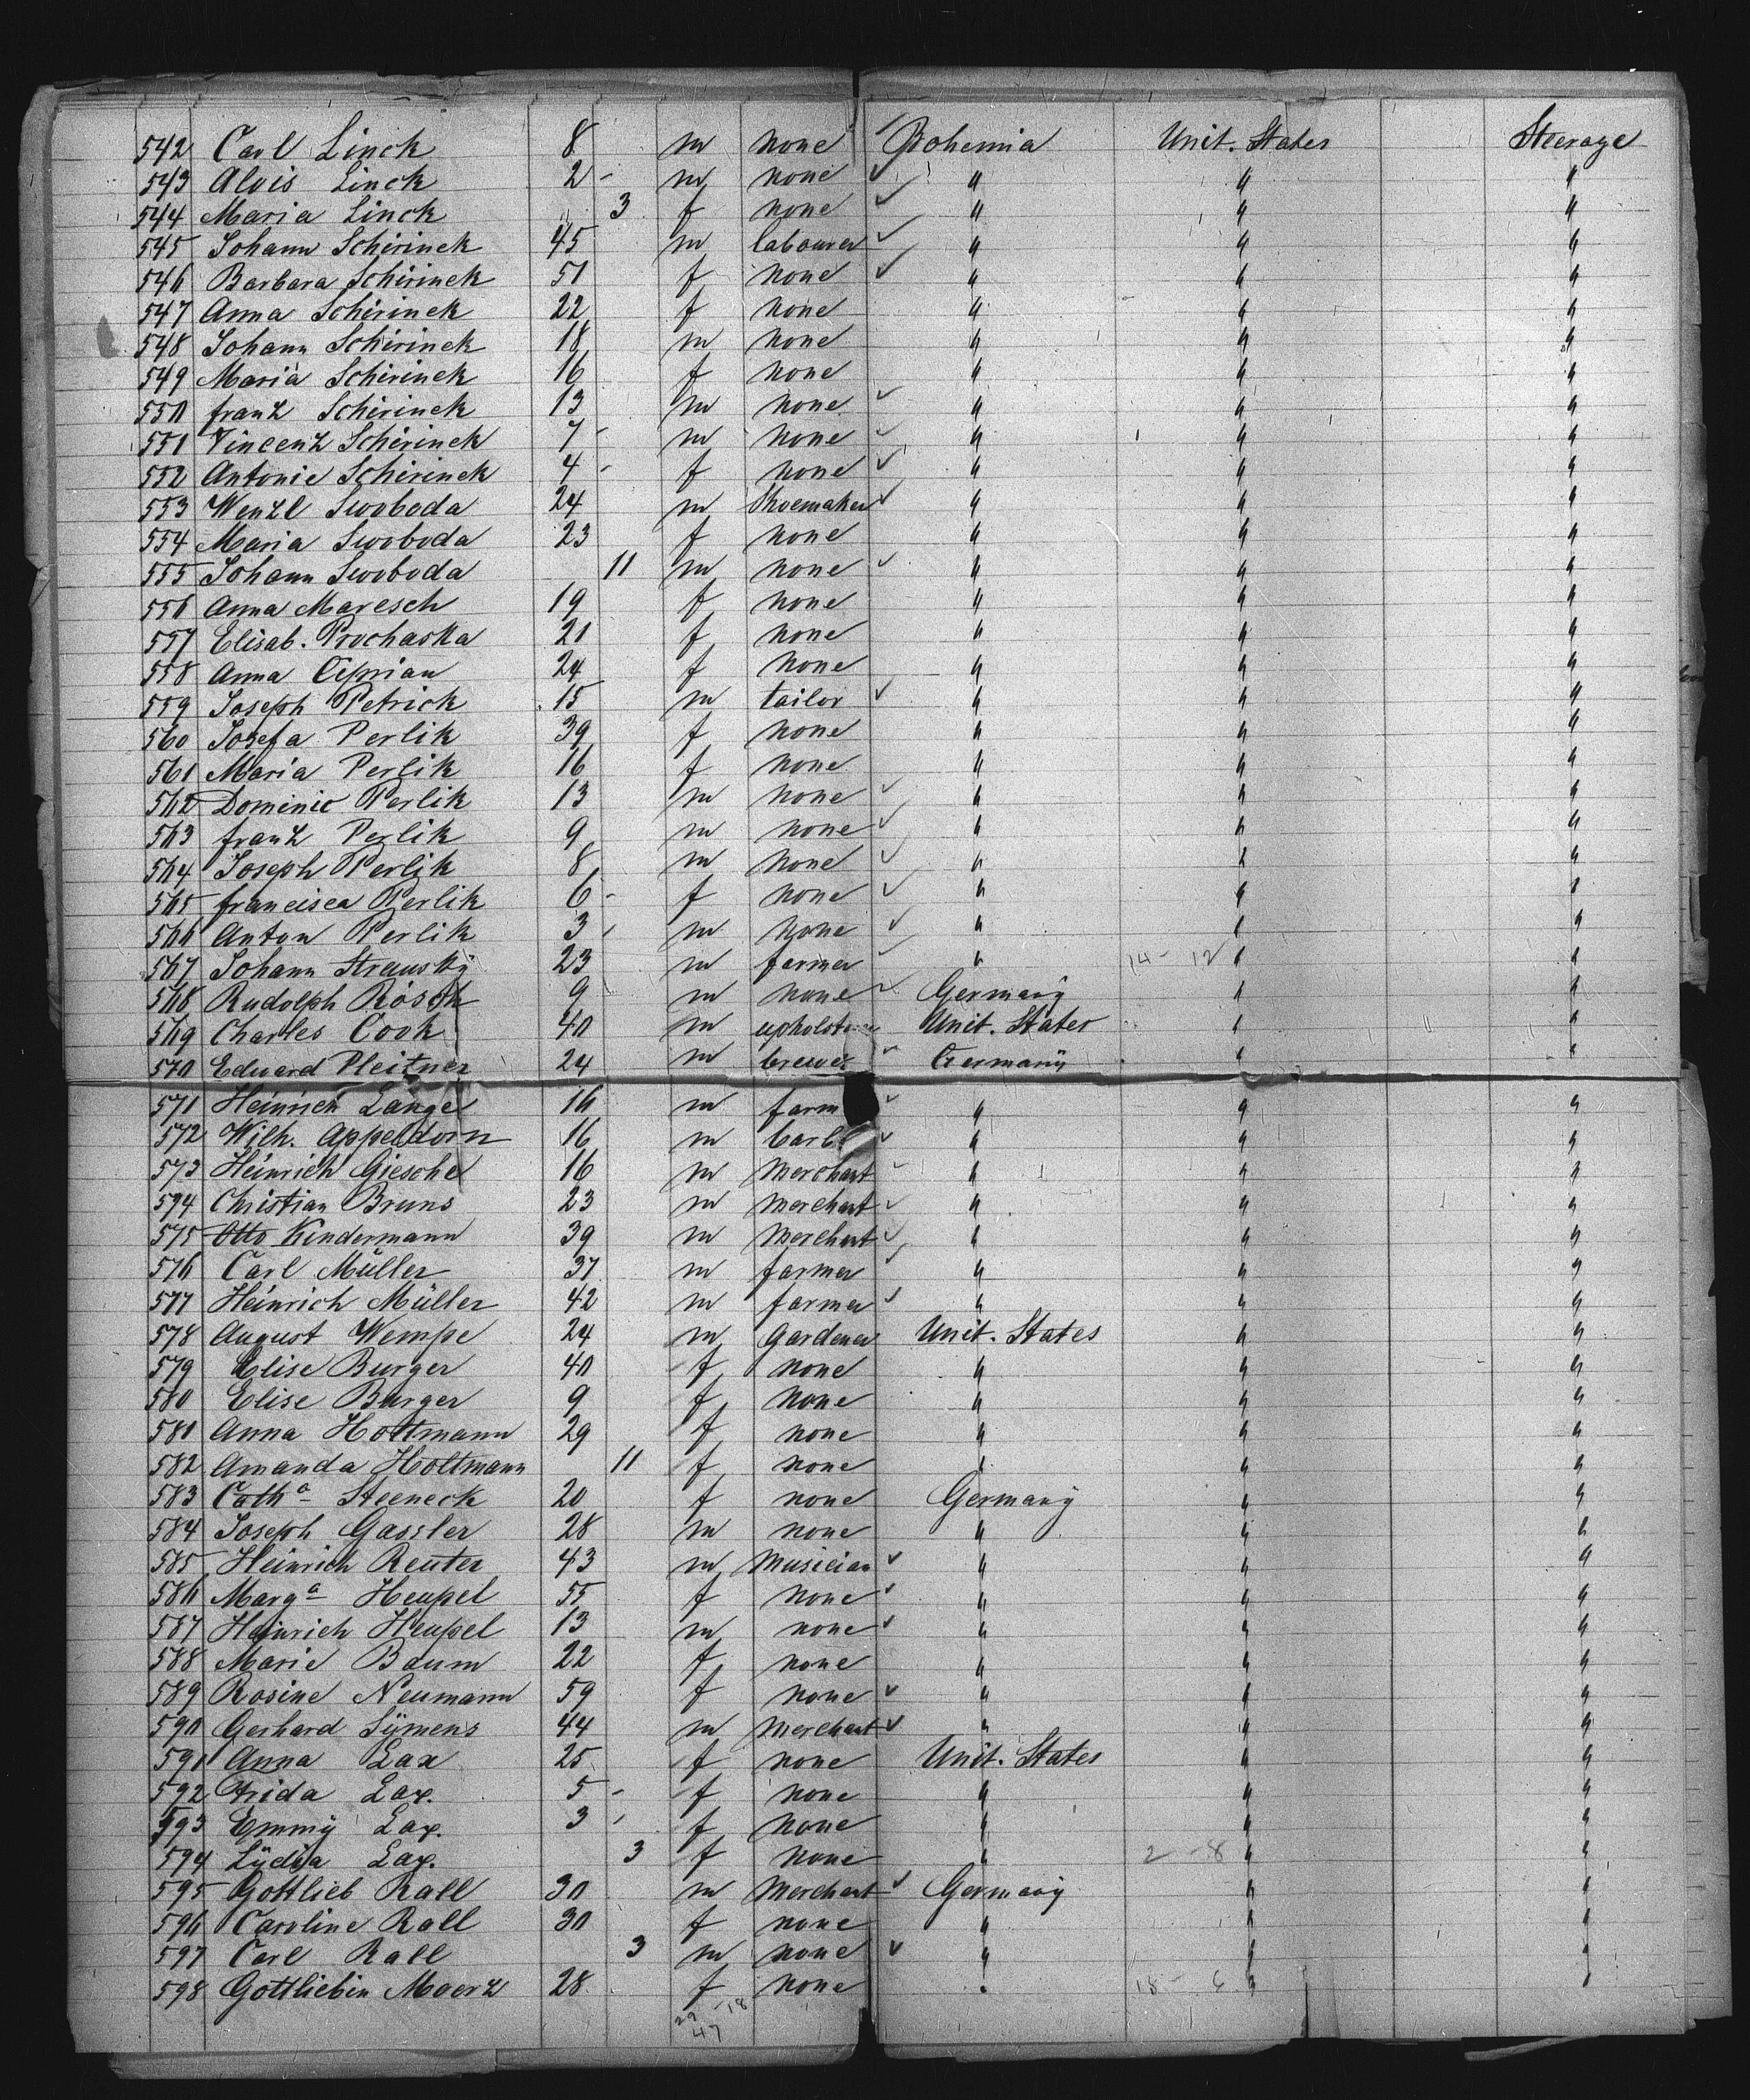 542 Carl Linck 8 m none Bohemia Unit. States Steerage
543 Alois Linck 2 - m none " " "
544 Maria Linck 3 f none " " "
545 Johann Schirinek 45 m labourer " " "
546 Barbara Schirinek 51 f none " " "
547 Anna Schirinek 22 f none " " "
548 Johann Schirinek 18 m none " " "
549 Maria Schirinek 16 f none " " "
550 franz Schirinek 13 m none " " "
551 Vincenz Schirinek 7 - m none " " "
552 Antonie Schirinek 4 - f none " " "
553 Wenzl Swoboda 24 m Shoemaker " " "
554 Maria Swoboda 23 f none " " "
555 Johann Swoboda 11 m none " " "
556 Anna Maresch 19 f none " " "
557 Elisab. Prochaska 21 f none " " "
558 Anna Ciprian 24 f none " " "
559 Joseph Petrick 15 m tailor " " "
560 Josefa Perlik 39 f none " " "
561 Maria Perlik 16 f none " " "
562 Dominic Perlik 13 m none " " "
563 franz Perlik 9 m none " " "
564 Joseph Perlik 8 m none " " "
565 francisca Perlik 6 - f none " " "
566 Anton Perlik 3 - m none " " "
567 Johann Stransky 23 m farmer " 14 - 12 " "
568 Rudolph Rösch 9 m none Germany " "
569 Charles Cook 40 m upholsterer Unit. States " "
570 Eduard Pleitner 24 m brewer Germany " "
571 Heinrich Lange 16 m farm " " "
572 Wilh. Appeldorn 16 m barb " " "
573 Heinrich Giesche 16 m Merchant " " "
574 Christian Bruns 23 m Merchant " " "
575 Otto Kindermann 39 m Merchant " " "
576 Carl Müller 37 m farmer " " "
577 Heinrich Müller 42 m farmer " " "
578 August Wempe 24 m Gardener Unit. States " "
579 Elise Burger 40 f none " " "
580 Elise Burger 9 f none " " "
581 Anna Holtmann 29 f none " " "
582 Amanda Holtmann 11 f none " " "
583 Cath a Steeneck 20 f none Germany " "
584 Joseph Gassler 28 m none " " "
585 Heinrich Reuter 43 m Musician " " "
586 Marg a Heupel 55 f none " " "
587 Heinrich Heupel 13 m none " " "
588 Marie Baum 22 f none " " "
589 Rosine Neumann 59 f none " " "
590 Gerhard Sÿmens 44 m Merchant " " "
591 Anna Lax 25 f none Unit. States " "
592 Frida Lax. 5 - f none " " "
593 Emmÿ Lax. 3 - f none " " "
594 Lÿdia Lax. 3 f none " 2 - 8 " "
595 Gottlieb Rall 30 m Merchant Germany " "
596 Caroline Rall 30 f none " " "
597 Carl Rall 3 m none " " "
598 Gottliebin Moerz 28 f none " 18 - 6 " "
29 - 18
47